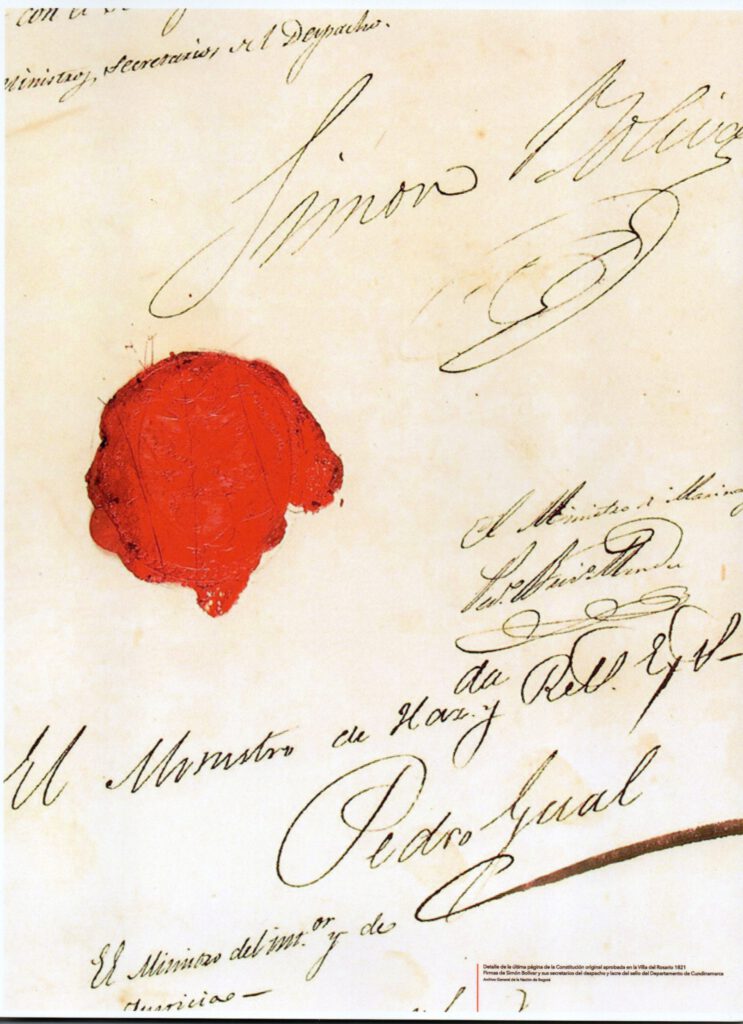 con el
Ministros, Secretarios, del Despacho.
Simon Boliva
El Ministro de Marina
El Ministro de Haz.da y Rel.s Ex.s
Pedro Gual
El Ministro del int.or y de
Justicia—
Detalle de la última página de la Constitución original aprobada en la Villa del Rosario 1821
Firmas de Simón Bolívar y sus secretarios del despacho y lacre del sello del Departamento de Cundinamarca
Archivo General de la Nación de Bogotá